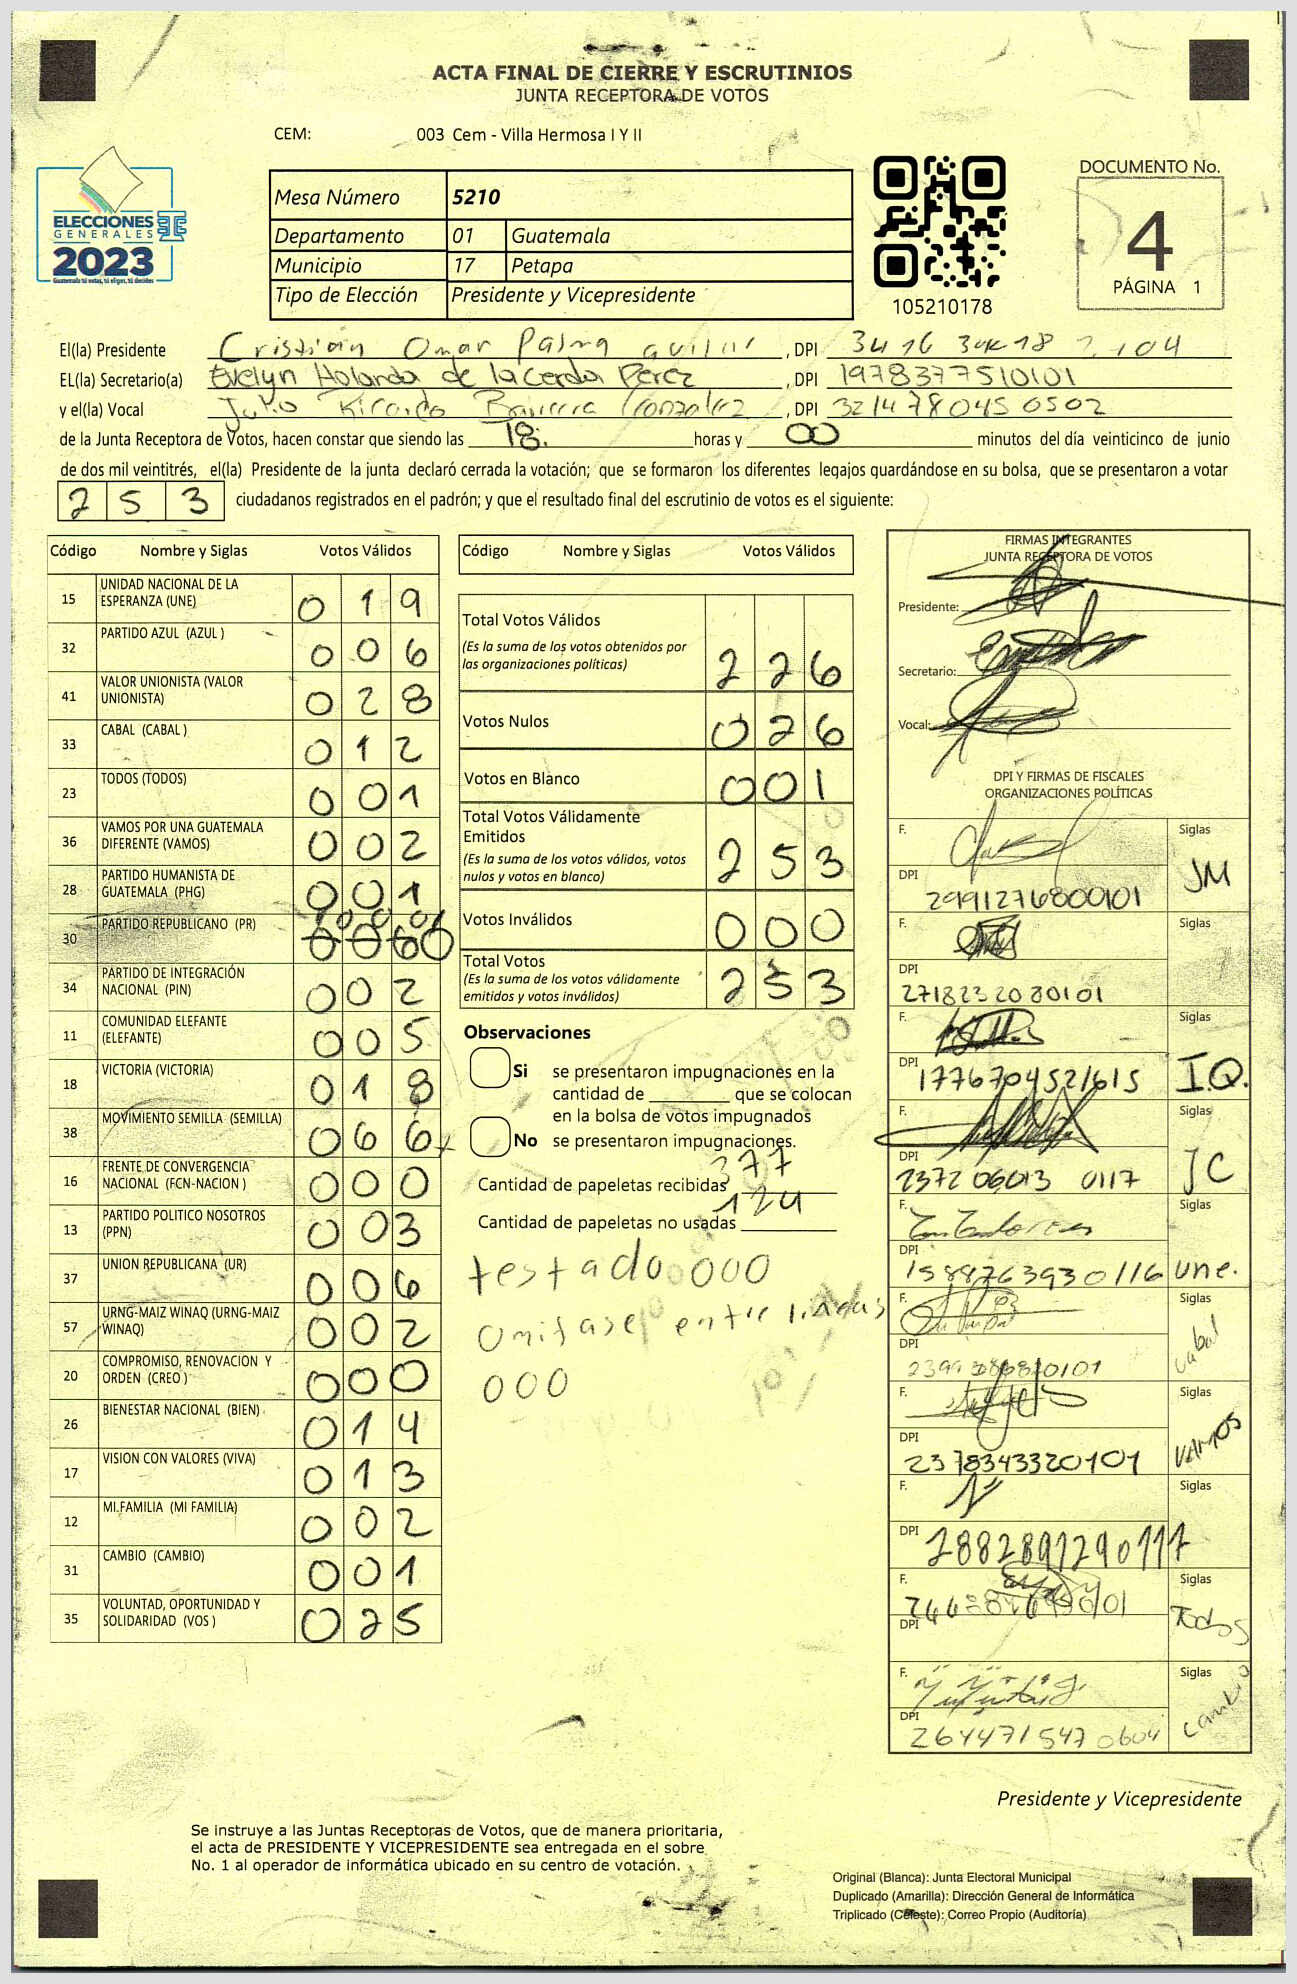 ACTA FINAL DE CIERRE Y ESCRUTINIOS
JUNTA RECEPTORA DE VOTOS
CEM: 003 Cem - Villa Hermosa I Y II
ELECCIONES
GENERALES
2023
Guatemala tú votas, tú eliges, tú decides
Mesa Número 5210
Departamento 01 Guatemala
Municipio 17 Petapa
Tipo de Elección Presidente y Vicepresidente
105210178
DOCUMENTO No.
4
PÁGINA 1
El(la) Presidente Cristian Omar Palma aguilar, DPI
EL(la) Secretario(a) Evelyn Holanda de la cerda Perez, DPI 1978377510101
y el(la) Vocal Julio Ricardo Barrera Gonzalez, DPI 3214780450502
de la Junta Receptora de Votos, hacen constar que siendo las 18: horas y 00 minutos del día veinticinco de junio
de dos mil veintitrés, el(la) Presidente de la junta declaró cerrada la votación; que se formaron los diferentes legajos guardándose en su bolsa, que se presentaron a votar
253 ciudadanos registrados en el padrón; y que el resultado final del escrutinio de votos es el siguiente:
Código Nombre y Siglas Votos Válidos
15 UNIDAD NACIONAL DE LA ESPERANZA (UNE) 019
32 PARTIDO AZUL (AZUL ) 006
41 VALOR UNIONISTA (VALOR UNIONISTA) 028
33 CABAL (CABAL ) 012
23 TODOS (TODOS) 001
36 VAMOS POR UNA GUATEMALA DIFERENTE (VAMOS) 002
28 PARTIDO HUMANISTA DE GUATEMALA (PHG) 001
30 PARTIDO REPUBLICANO (PR)
34 PARTIDO DE INTEGRACIÓN NACIONAL (PIN) 002
11 COMUNIDAD ELEFANTE (ELEFANTE) 005
18 VICTORIA (VICTORIA) 018
38 MOVIMIENTO SEMILLA (SEMILLA) 066
16 FRENTE DE CONVERGENCIA NACIONAL (FCN-NACION ) 000
13 PARTIDO POLITICO NOSOTROS (PPN) 003
37 UNION REPUBLICANA (UR) 006
57 URNG-MAIZ WINAQ (URNG-MAIZ WINAQ) 002
20 COMPROMISO, RENOVACION Y ORDEN (CREO ) 000
26 BIENESTAR NACIONAL (BIEN) 014
17 VISION CON VALORES (VIVA) 013
12 MI FAMILIA (MI FAMILIA) 002
31 CAMBIO (CAMBIO) 001
35 VOLUNTAD, OPORTUNIDAD Y SOLIDARIDAD (VOS ) 025
Código Nombre y Siglas Votos Válidos
Total Votos Válidos 226
(Es la suma de los votos obtenidos por
las organizaciones políticas)
Votos Nulos 026
Votos en Blanco 001
Total Votos Válidamente
Emitidos 253
(Es la suma de los votos válidos, votos
nulos y votos en blanco)
Votos Inválidos 000
Total Votos 253
(Es la suma de los votos válidamente
emitidos y votos inválidos)
Observaciones
Si se presentaron impugnaciones en la
cantidad de ________ que se colocan
en la bolsa de votos impugnados
No se presentaron impugnaciones.
Cantidad de papeletas recibidas 377
Cantidad de papeletas no usadas 124
testado 000
Omitase entre lineas
000
FIRMAS INTEGRANTES
JUNTA RECEPTORA DE VOTOS
Presidente:
Secretario:
Vocal:
DPI Y FIRMAS DE FISCALES
ORGANIZACIONES POLÍTICAS
F. Siglas JM
DPI 2991276800101
F. Siglas
DPI 2718232080101
F. Siglas I.Q.
DPI 1776704521615
F. Siglas JC
DPI 2372060130117
F. Siglas une.
DPI 1588763930116
F. Siglas cabal
DPI
F. Siglas VAMOS
DPI 2378343320101
F. Siglas
DPI 2882891290117
F. Siglas Todos
DPI
F. Siglas cambio
DPI 2644715470604
Presidente y Vicepresidente
Se instruye a las Juntas Receptoras de Votos, que de manera prioritaria,
el acta de PRESIDENTE Y VICEPRESIDENTE sea entregada en el sobre
No. 1 al operador de informática ubicado en su centro de votación.
Original (Blanca): Junta Electoral Municipal
Duplicado (Amarilla): Dirección General de Informática
Triplicado (Celeste): Correo Propio (Auditoría)